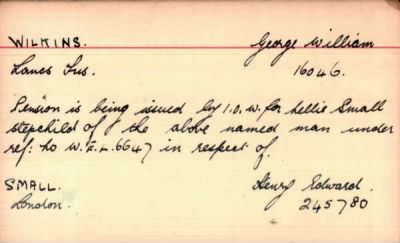 WILKINS. George William
Lancs Fus. 16046.
Pension is being issued by I.O.W. for Nellie Small
stepchild of the above named man under
ref: to W.F.L. 6647 in respect of.
SMALL. Henry Edward.
London. 245780